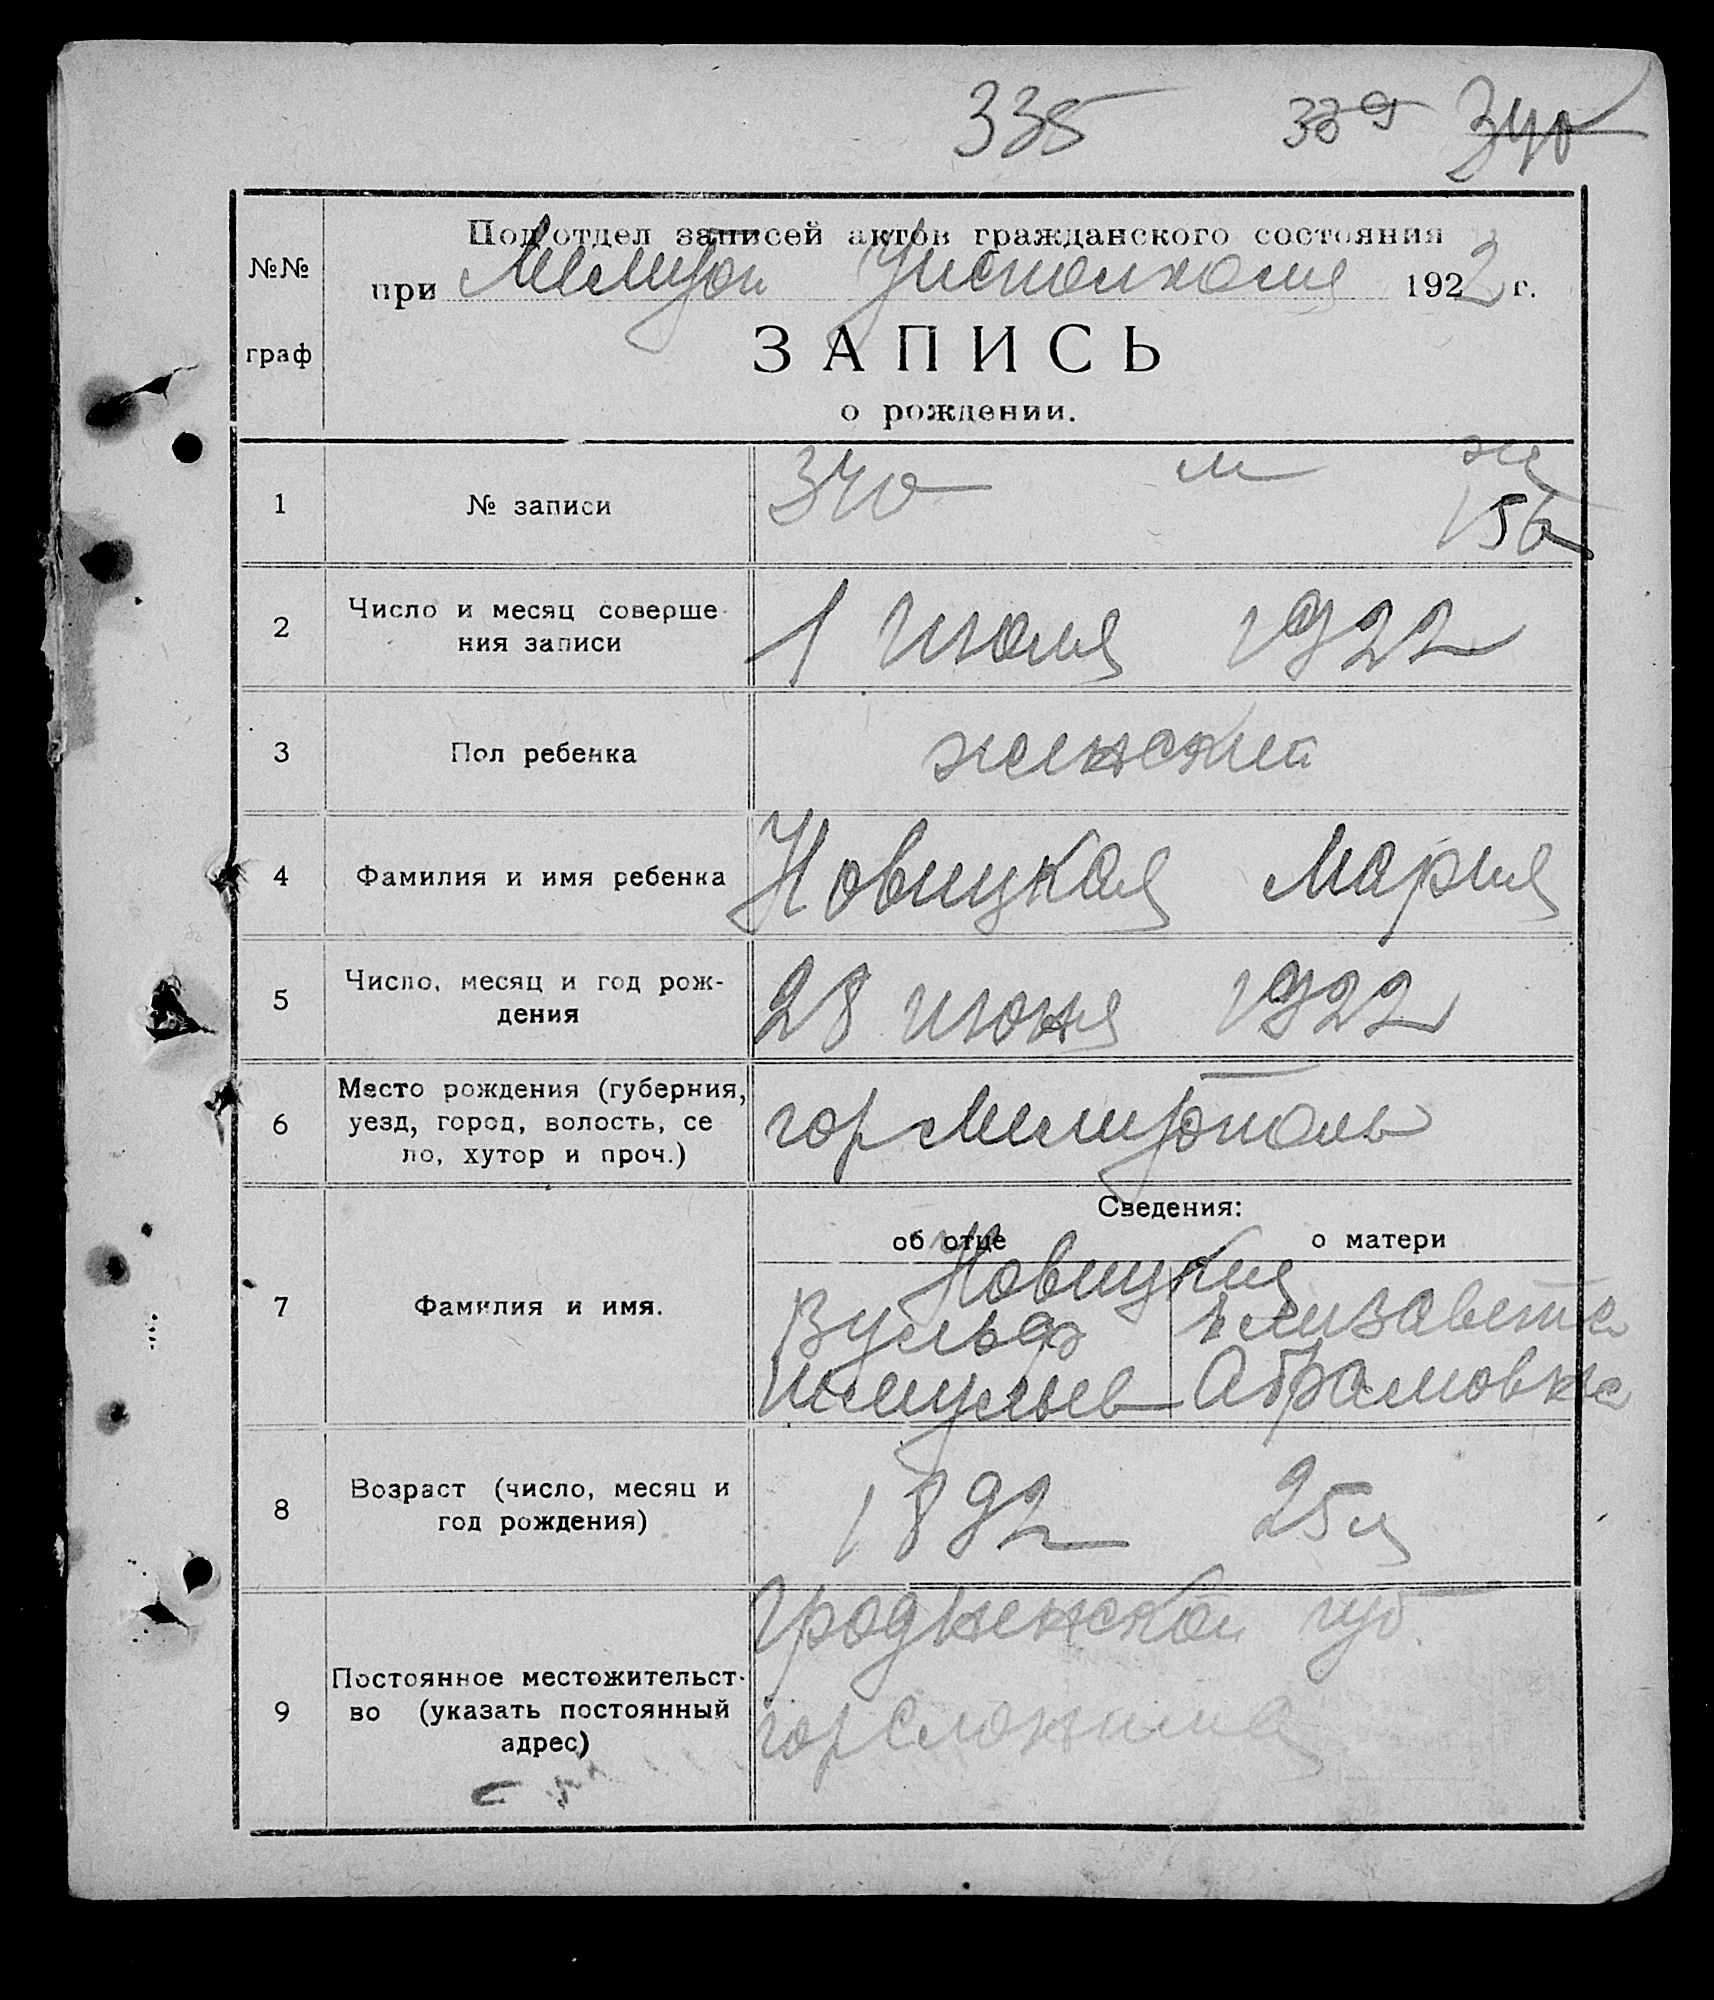 335 339 340
№№ граф
Подотдел записей актов гражданского состояния
при Мелитоп Исполкоме 1922 г.
ЗАПИСЬ
о рождении.
1 № записи 340 м ж 156
2 Число и месяц соверше-
ния записи 1 июля 1922
3 Пол ребенка женский
4 Фамилия и имя ребенка Новицкая Мария
5 Число, месяц и год рож-
дения 28 июня 1922
6 Место рождения (губерния,
уезд, город, волость, се
ло, хутор и проч.) гор Мелитополь
Сведения:
об отце о матери
Новицкия
7 Фамилия и имя. Вульф Елизавета
Шмулыев Абрамовна
8 Возраст (число, месяц и
год рождения) 1892 25 л
9 Постоянное местожительст-
во (указать постоянный
адрес) Гродненской губ.
гор Слонима